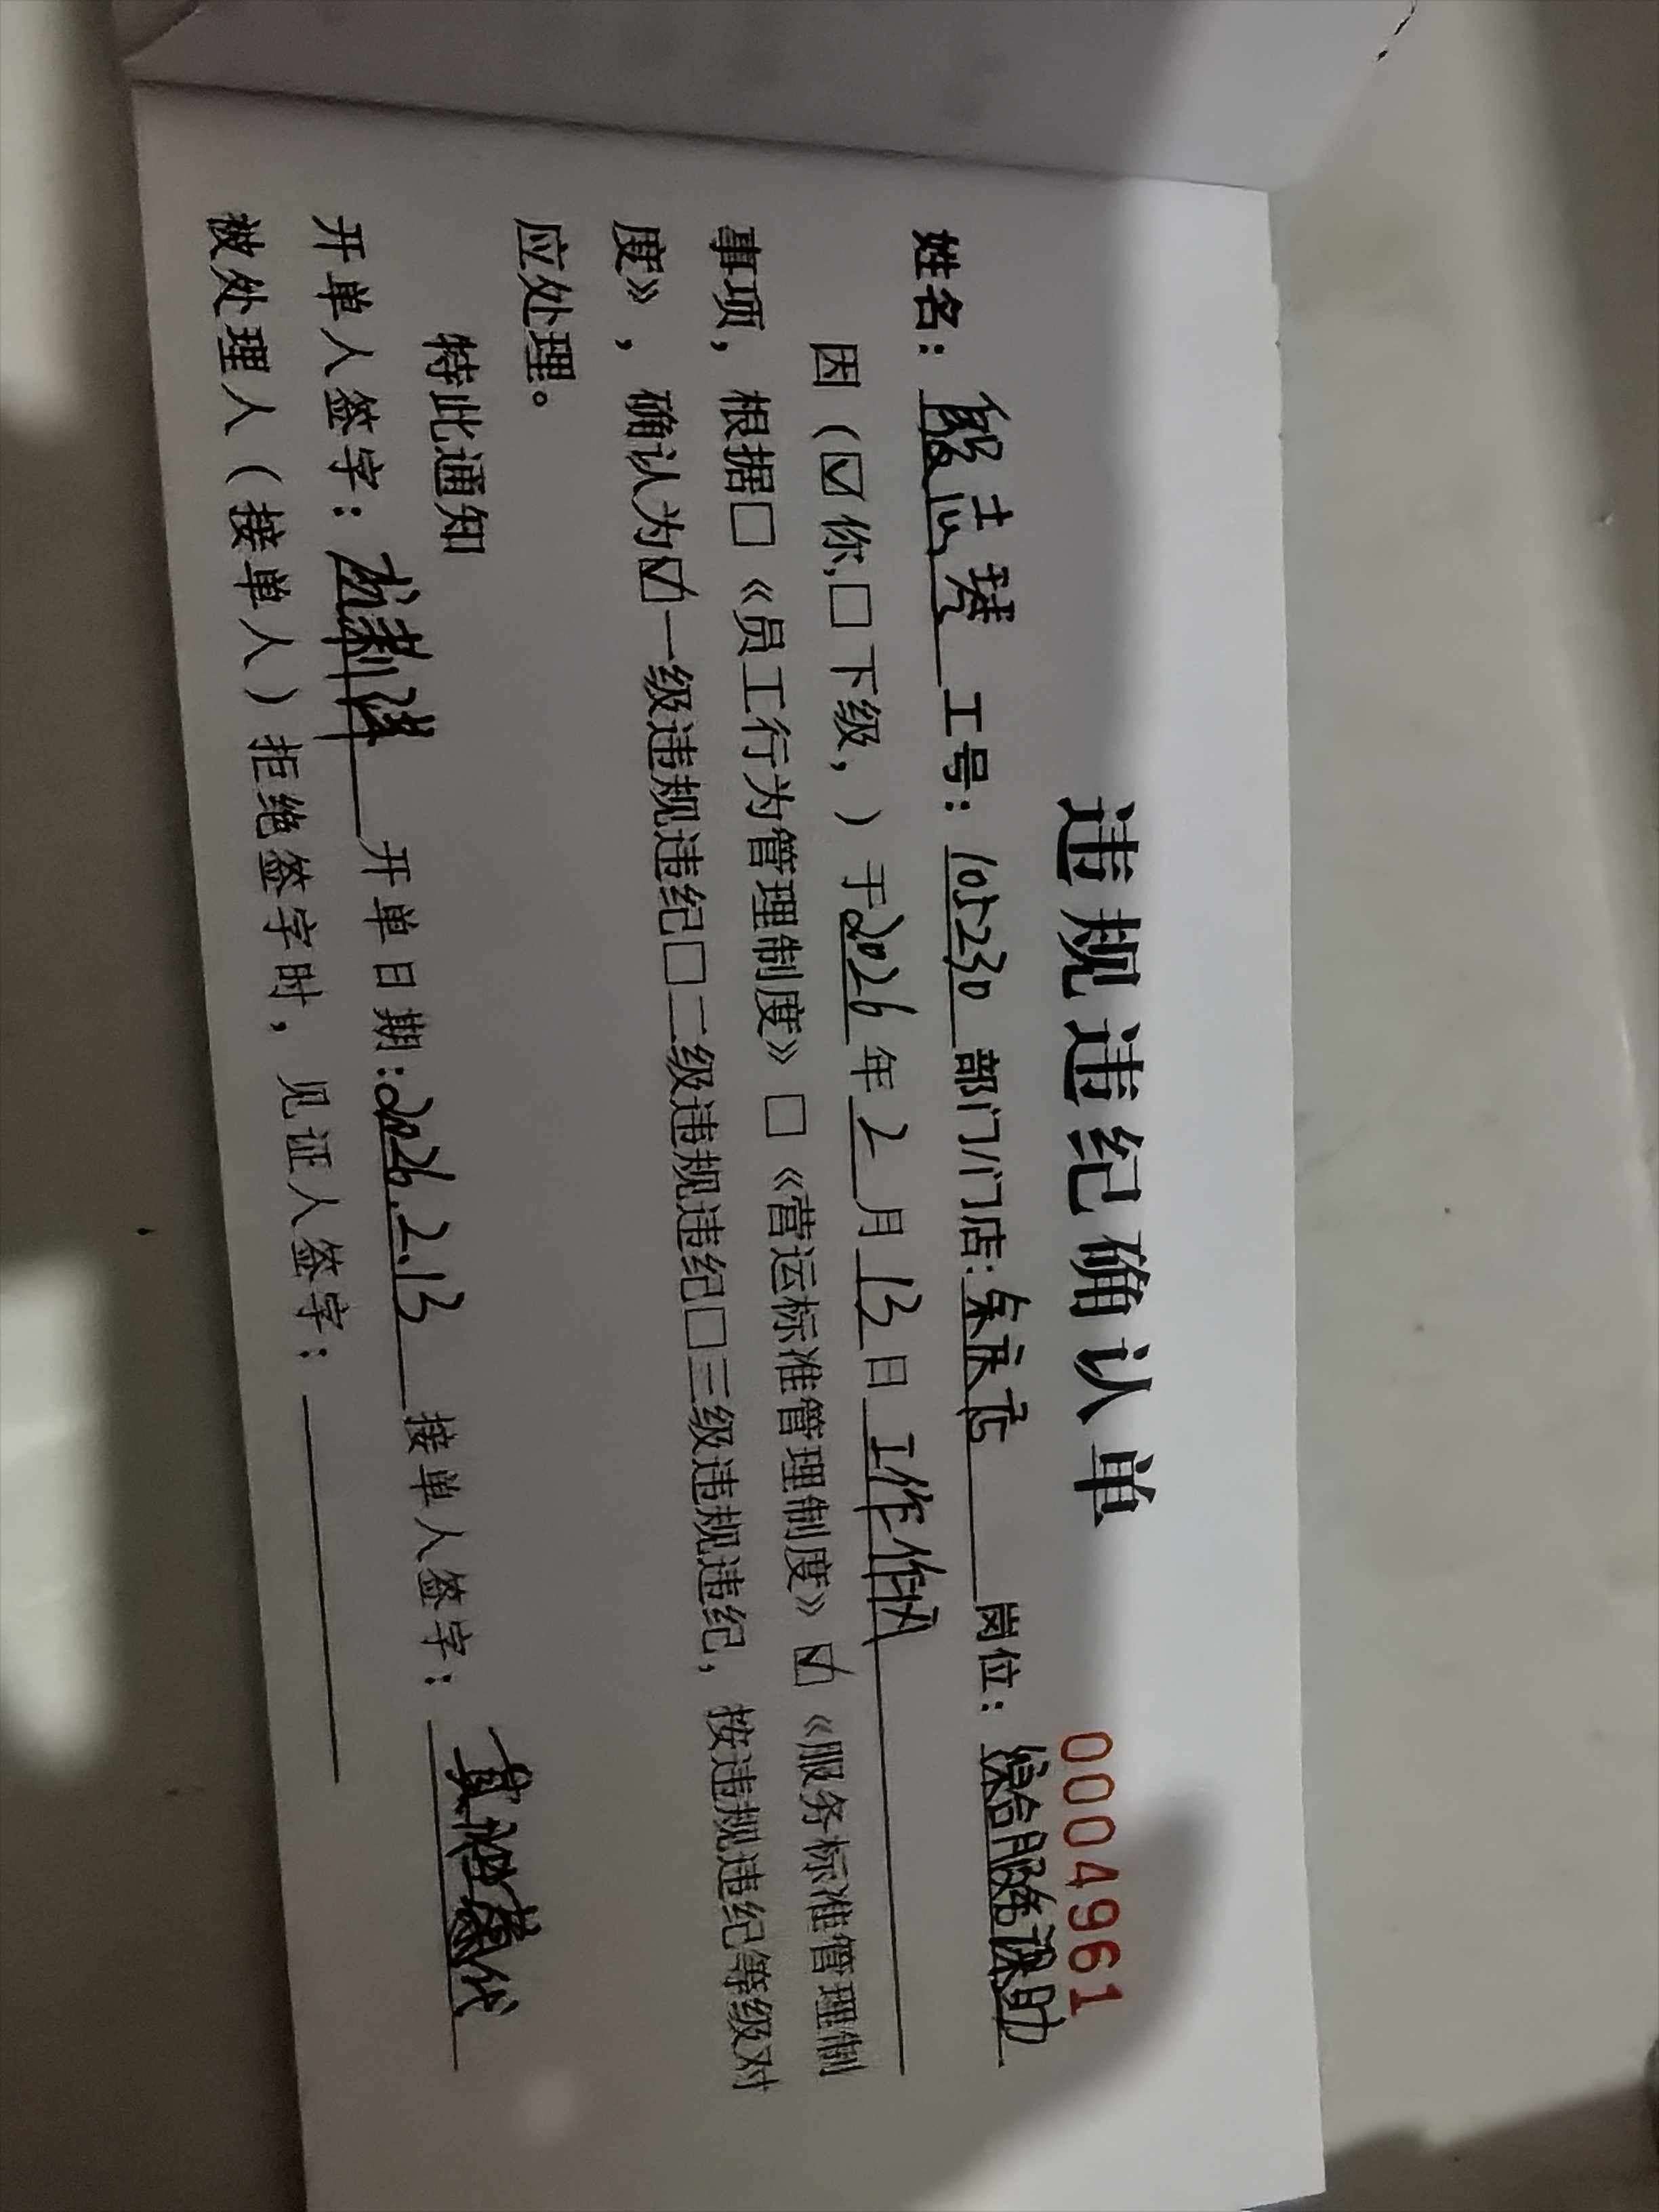 违规违纪确认单
0004961
姓名：段志琴 工号：105230 部门/门店：安庆店 岗位：综合服务课助
因（☑你,□下级，）于2026年2月13日工作作风
事项，根据□《员工行为管理制度》□《营运标准管理制度》☑《服务标准管理制
度》，确认为☑一级违规违纪□二级违规违纪□三级违规违纪，按违规违纪等级对
应处理。
特此通知
开单人签字： 开单日期：2026.2.13 接单人签字：
被处理人（接单人）拒绝签字时，见证人签字：